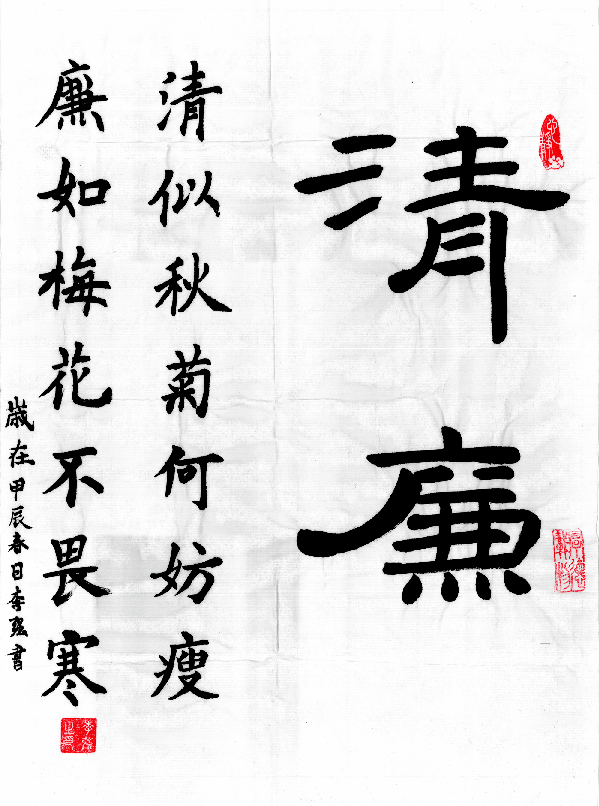 清廉
清似秋菊何妨瘦
廉如梅花不畏寒
歲在甲辰春日李強書